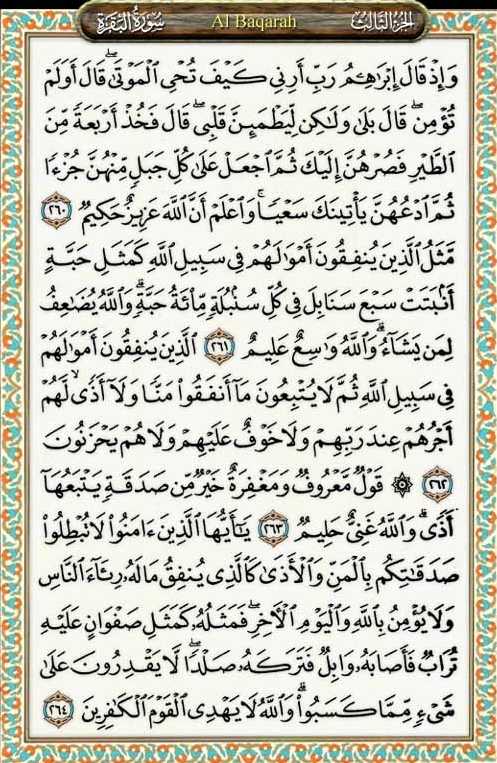 سُورَةُ البَقَرَةِ Al Baqarah الجُزْءُ الثَّالِثُ
وَإِذْ قَالَ إِبْرَٰهِـۧمُ رَبِّ أَرِنِي كَيْفَ تُحْيِ ٱلْمَوْتَىٰ ۖ قَالَ أَوَلَمْ
تُؤْمِن ۖ قَالَ بَلَىٰ وَلَٰكِن لِّيَطْمَئِنَّ قَلْبِي ۖ قَالَ فَخُذْ أَرْبَعَةً مِّنَ
ٱلطَّيْرِ فَصُرْهُنَّ إِلَيْكَ ثُمَّ ٱجْعَلْ عَلَىٰ كُلِّ جَبَلٍ مِّنْهُنَّ جُزْءًا
ثُمَّ ٱدْعُهُنَّ يَأْتِينَكَ سَعْيًا ۚ وَٱعْلَمْ أَنَّ ٱللَّهَ عَزِيزٌ حَكِيمٌ ٢٦٠
مَّثَلُ ٱلَّذِينَ يُنفِقُونَ أَمْوَٰلَهُمْ فِي سَبِيلِ ٱللَّهِ كَمَثَلِ حَبَّةٍ
أَنۢبَتَتْ سَبْعَ سَنَابِلَ فِي كُلِّ سُنۢبُلَةٍ مِّا۟ئَةُ حَبَّةٍ ۗ وَٱللَّهُ يُضَٰعِفُ
لِمَن يَشَآءُ ۗ وَٱللَّهُ وَٰسِعٌ عَلِيمٌ ٢٦١ ٱلَّذِينَ يُنفِقُونَ أَمْوَٰلَهُمْ
فِي سَبِيلِ ٱللَّهِ ثُمَّ لَا يُتْبِعُونَ مَآ أَنفَقُوا۟ مَنًّا وَلَآ أَذًى ۙ لَّهُمْ
أَجْرُهُمْ عِندَ رَبِّهِمْ وَلَا خَوْفٌ عَلَيْهِمْ وَلَا هُمْ يَحْزَنُونَ
٢٦٢ ۞ قَوْلٌ مَّعْرُوفٌ وَمَغْفِرَةٌ خَيْرٌ مِّن صَدَقَةٍ يَتْبَعُهَآ
أَذًى ۗ وَٱللَّهُ غَنِيٌّ حَلِيمٌ ٢٦٣ يَٰٓأَيُّهَا ٱلَّذِينَ ءَامَنُوا۟ لَا تُبْطِلُوا۟
صَدَقَٰتِكُم بِٱلْمَنِّ وَٱلْأَذَىٰ كَٱلَّذِي يُنفِقُ مَالَهُۥ رِئَآءَ ٱلنَّاسِ
وَلَا يُؤْمِنُ بِٱللَّهِ وَٱلْيَوْمِ ٱلْءَاخِرِ ۖ فَمَثَلُهُۥ كَمَثَلِ صَفْوَانٍ عَلَيْهِ
تُرَابٌ فَأَصَابَهُۥ وَابِلٌ فَتَرَكَهُۥ صَلْدًا ۖ لَّا يَقْدِرُونَ عَلَىٰ
شَيْءٍ مِّمَّا كَسَبُوا۟ ۗ وَٱللَّهُ لَا يَهْدِي ٱلْقَوْمَ ٱلْكَٰفِرِينَ ٢٦٤